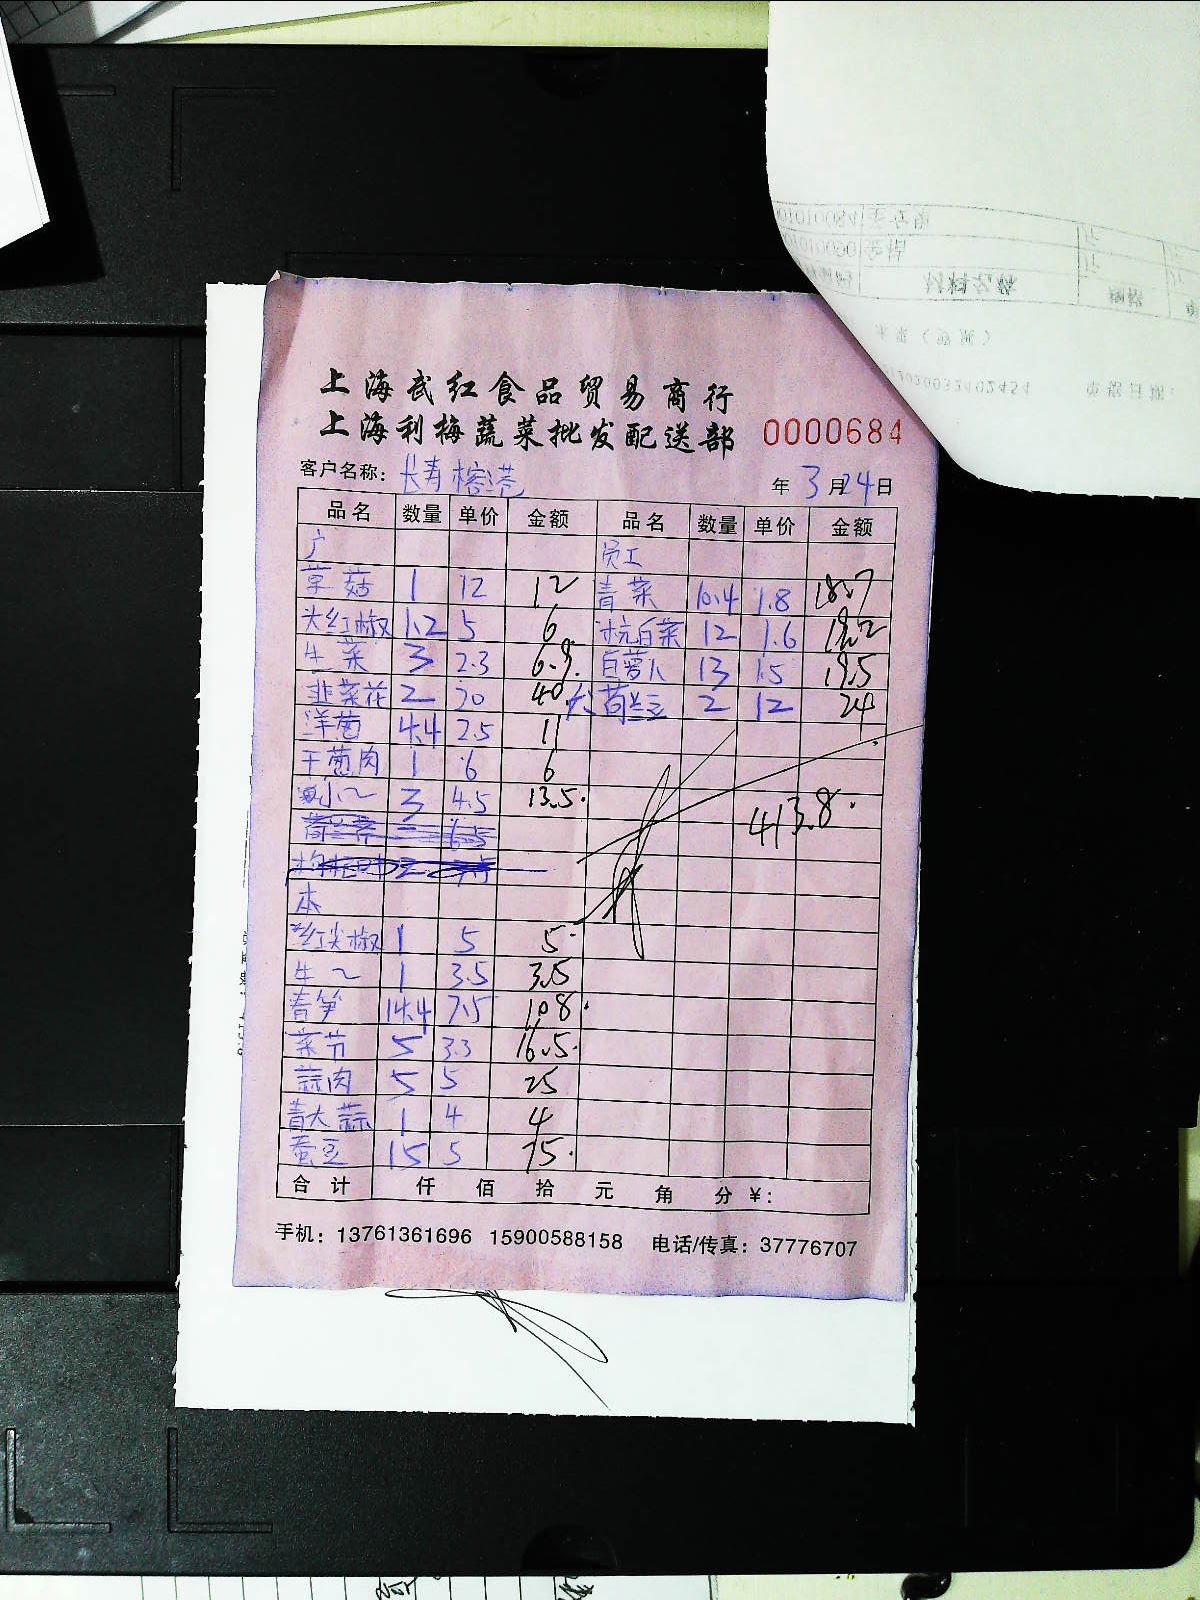 上海武红食品贸易商行
上海利梅蔬菜批发配送部 0000684
客户名称: 长寿榕港 年 3月24日
品名 数量 单价 金额 品名 数量 单价 金额
广 员工
草菇 1 12 12 青菜 10.4 1.8 18.7
尖红椒 1.2 5 6 杭白菜 12 1.6 19.2
生菜 3 2.3 6.9 白萝卜 13 1.5 19.5
韭菜花 2 20 40 大荷兰豆 2 12 24
洋葱 4.4 2.5 11
干葱肉 1 6 6
小～ 3 4.5 13.5
413.8
本
红尖椒 1 5 5
牛～ 1 3.5 3.5
青笋 14.4 7.5 108
菜节 5 3.3 16.5
蒜肉 5 5 25
青大蒜 1 4 4
蚕豆 15 5 75
合计 仟 佰 拾 元 角 分 ¥:
手机: 13761361696 15900588158 电话/传真: 37776707